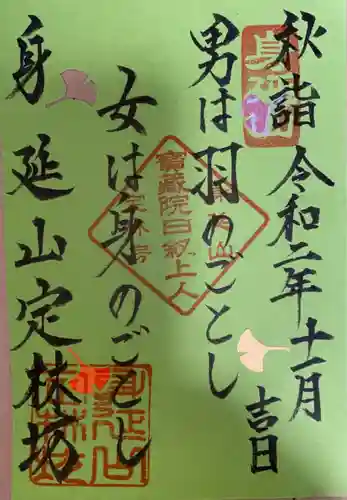 秋詣 令和二年十一月
吉日
男は羽のごとし
女は身のごとし
身延山定林坊
寶蔵院日叙上人